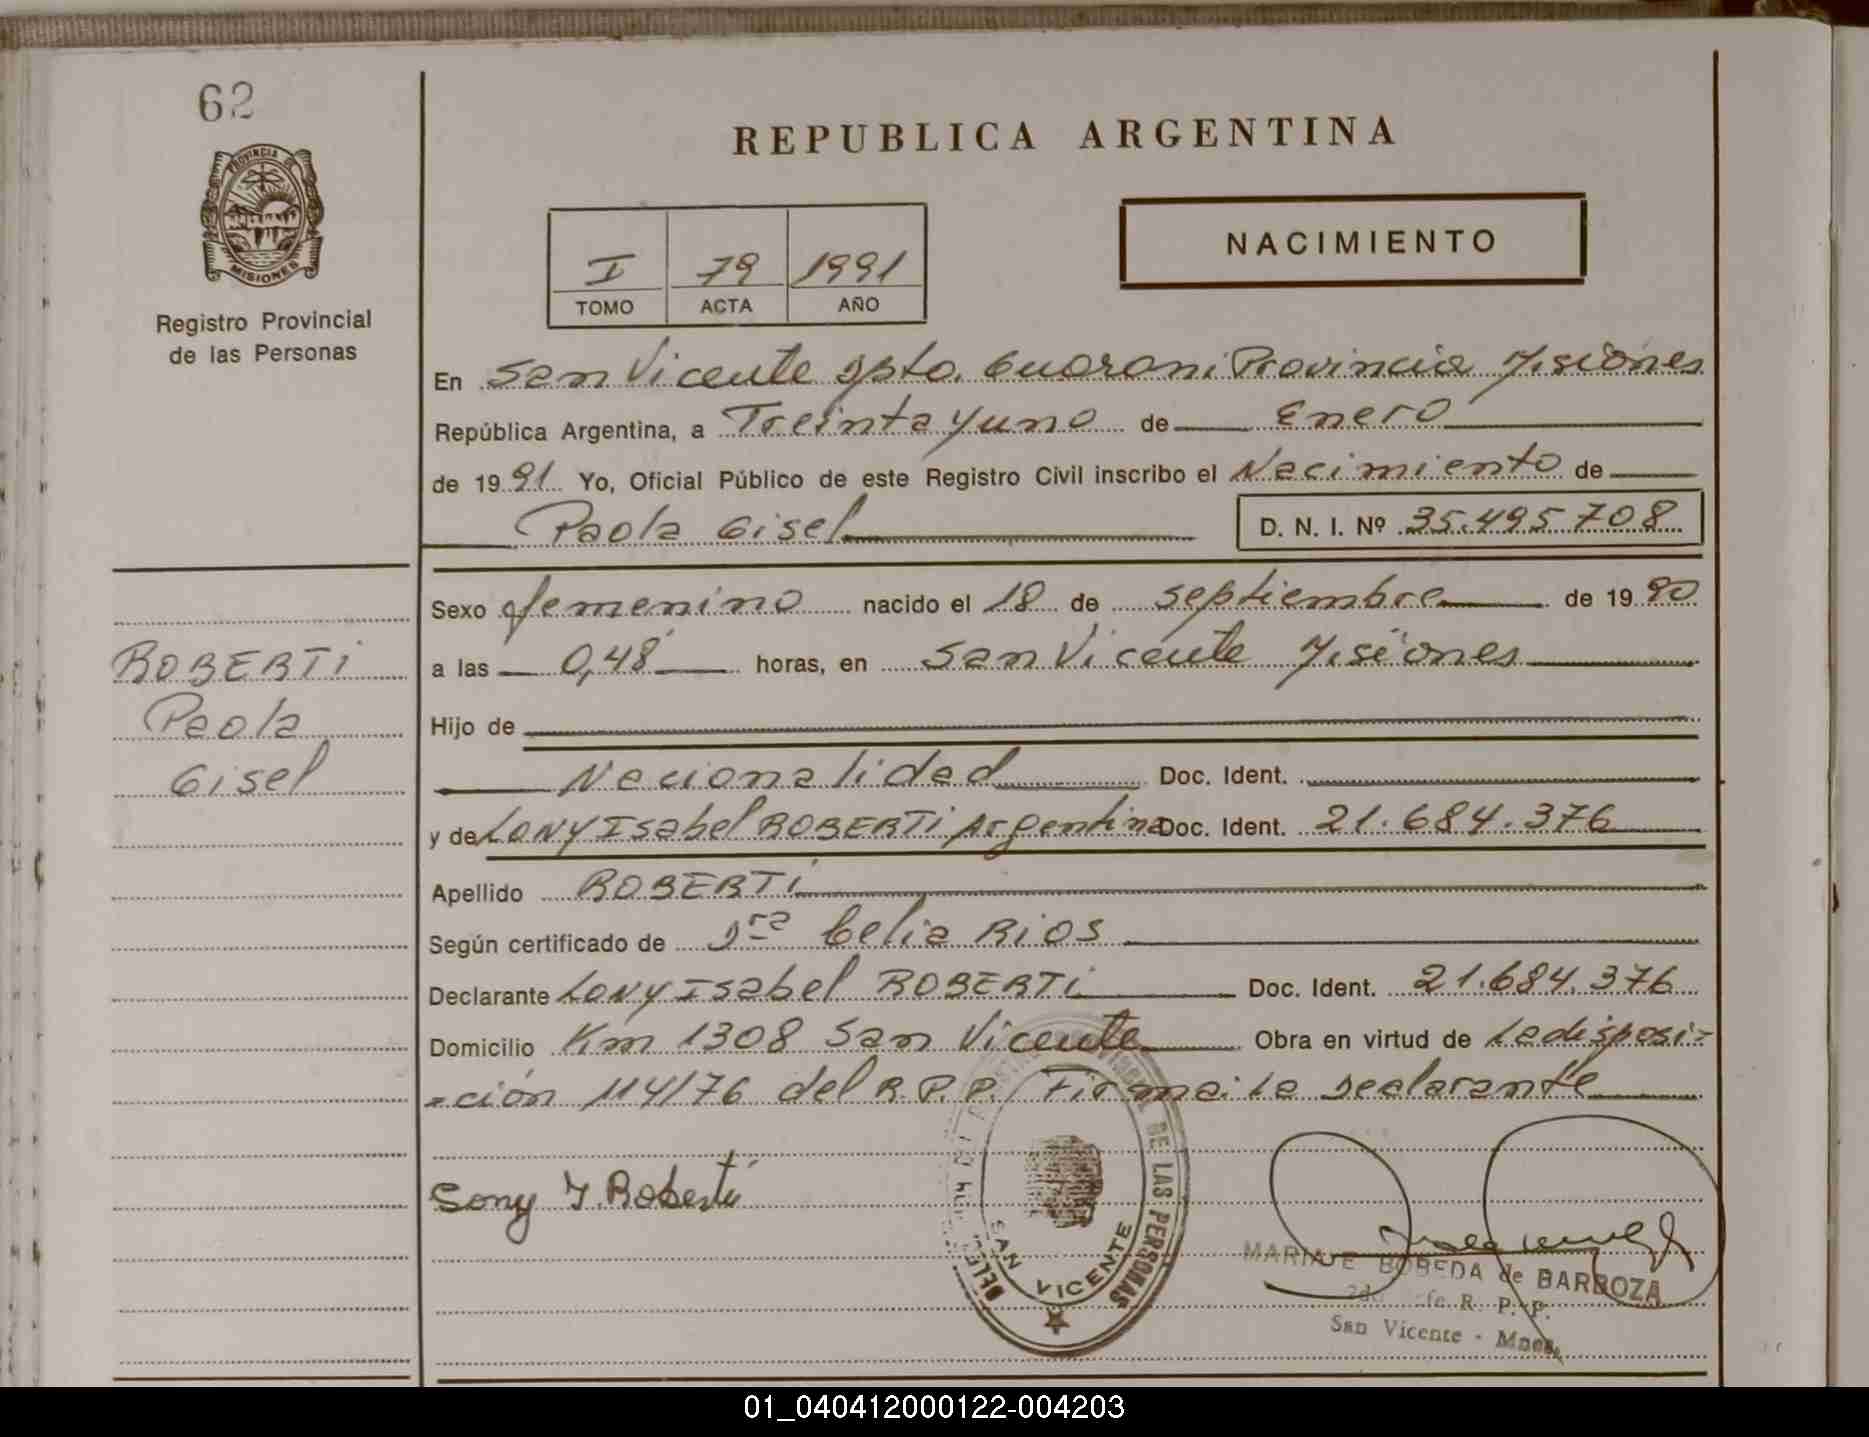 62
PROVINCIA DE
MISIONES
Registro Provincial
de las Personas
REPUBLICA ARGENTINA
I 79 1991
TOMO ACTA AÑO
NACIMIENTO
En San Vicente Dpto. Guarani Provincia Misiones
República Argentina, a Treinta y uno de Enero
de 1991 Yo, Oficial Público de este Registro Civil inscribo el Nacimiento de
Paola Gisel D. N. I. Nº 35.495.708
Sexo femenino nacido el 18 de septiembre de 1990
a las 0,48 horas, en San Vicente Misiones
Hijo de
Nacionalidad Doc. Ident.
y de Lony Isabel ROBERTI Argentina Doc. Ident. 21.684.376
Apellido ROBERTI
Según certificado de Dra Celia Rios
Declarante Lony Isabel ROBERTI Doc. Ident. 21.684.376
Domicilio Km 1308 San Vicente Obra en virtud de La disposi-
-ción 114/76 del R.P.P. Firma: La Declarante
ROBERTI
Paola
Gisel
Sony I. Roberti
DE LAS PERSONAS
SAN VICENTE
BOBEDA de BARBOZA
R. P. P.
San Vicente - Mnes.
01_040412000122-004203